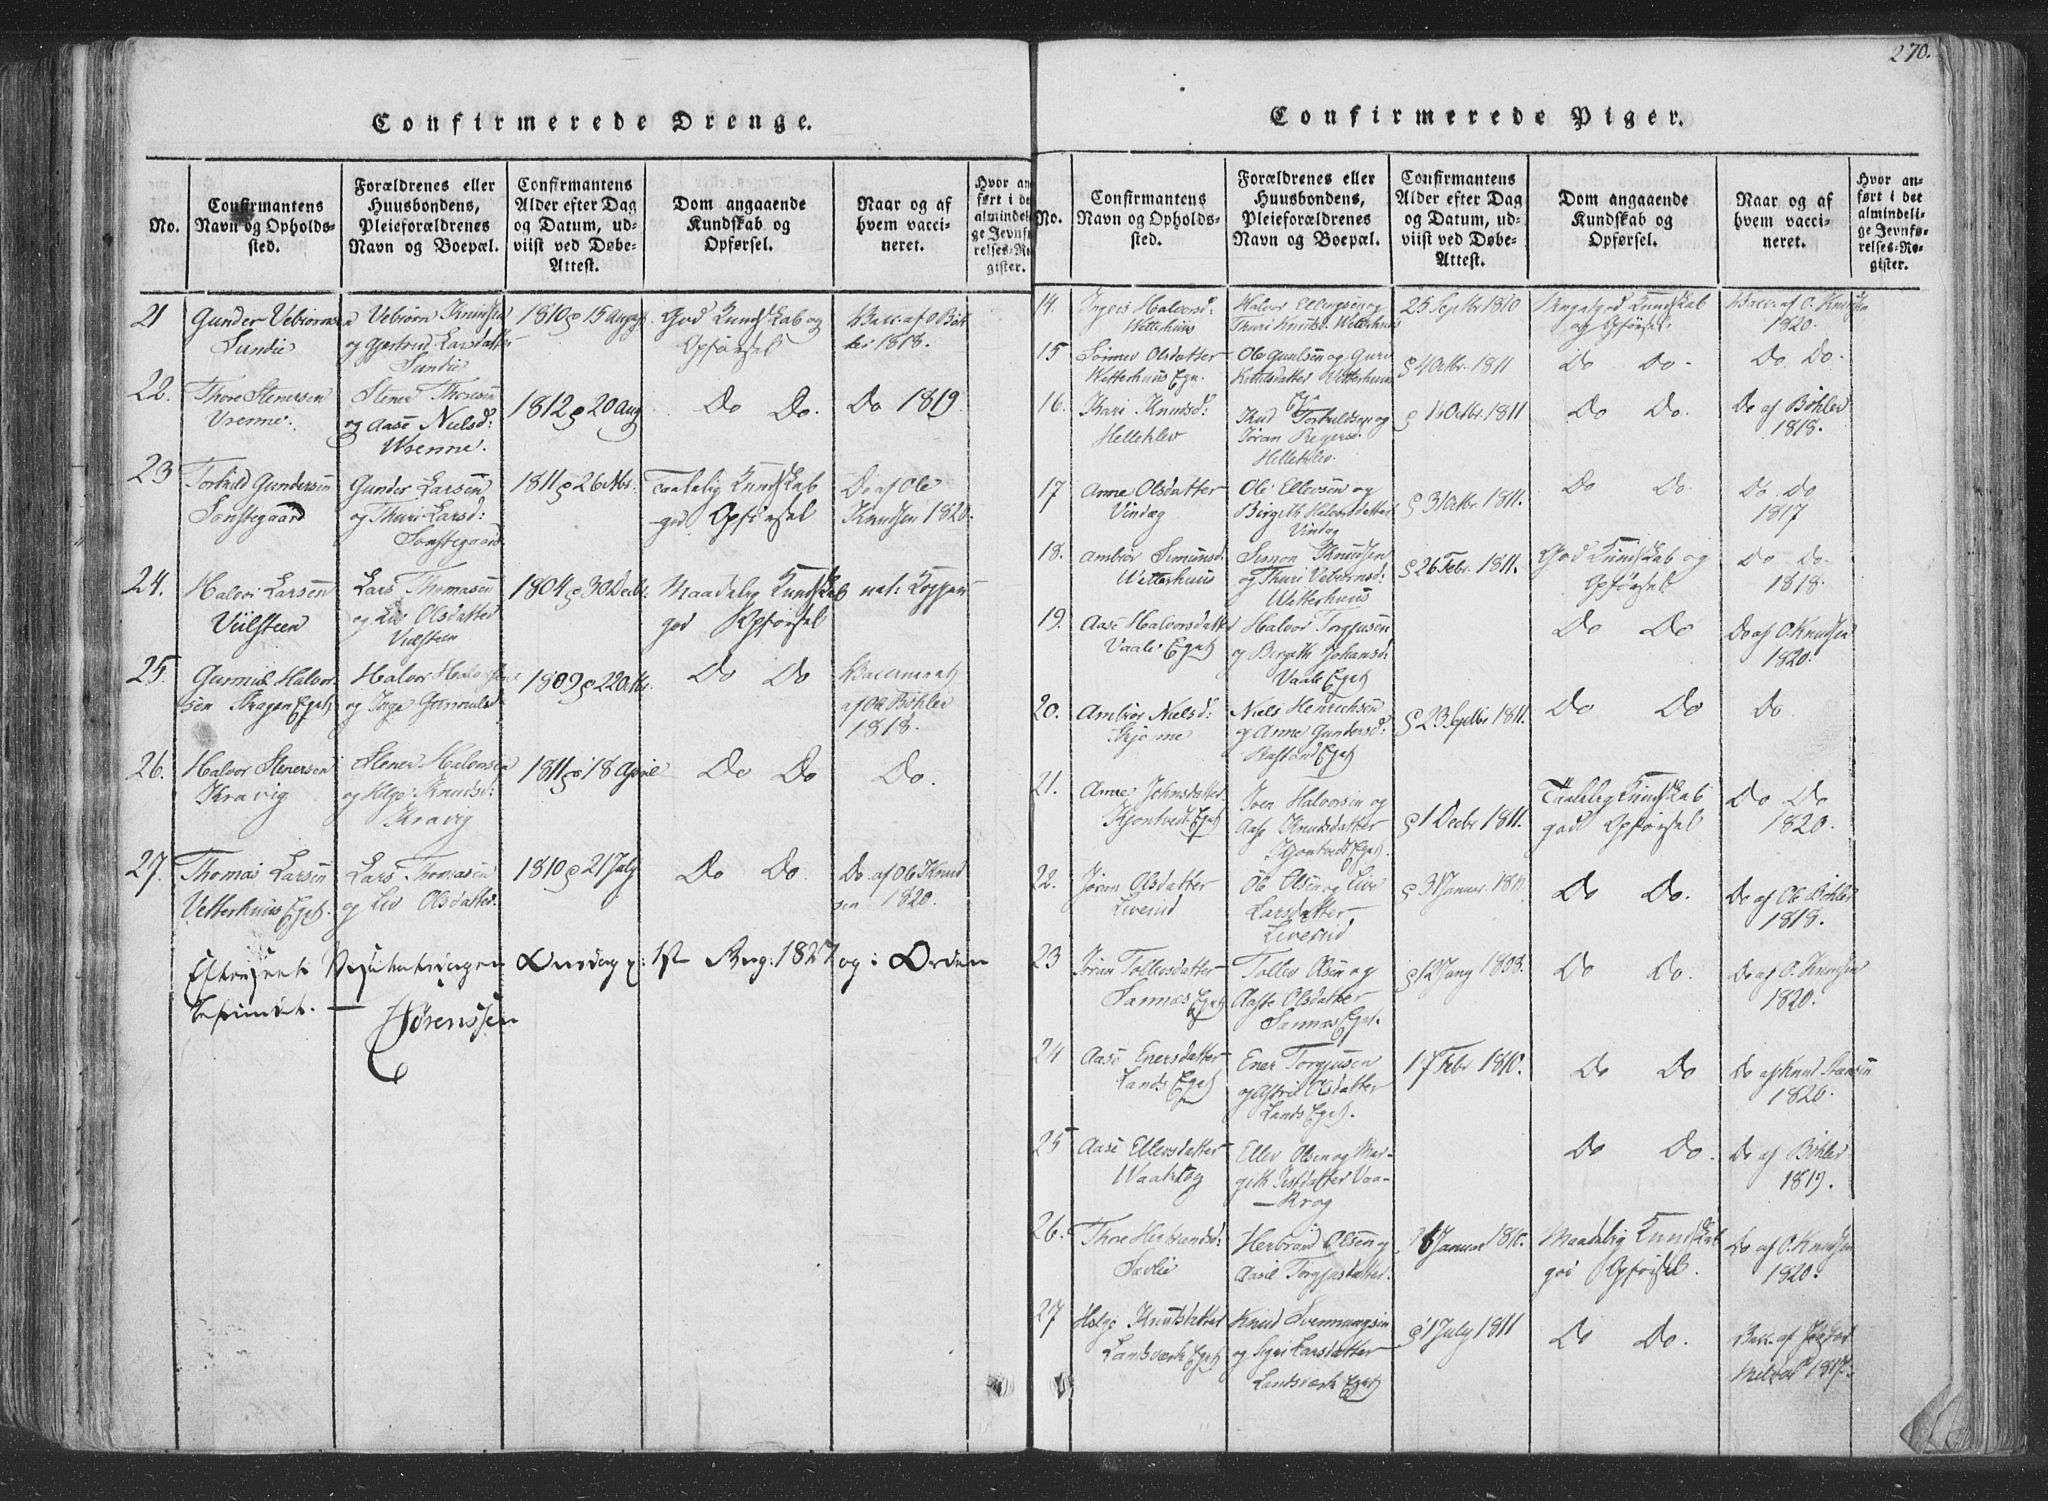 270.
Confirmerede Drenge.
No.
Confirmantens
Navn og Opholds-
sted.
Forældrenes eller
Huusbondens,
Pleieforældrenes
Navn og Boepæl.
Confirmantens
Alder efter Dag
og Datum, ud-
viist ved Døbe-
Attest.
Dom angaaende
Kundskab og
Opførsel.
Naar og af
hvem vacci-
neret.
Hvor an-
ført i det
almindeli-
ge Jevnfø-
relses-Re-
gister.
21
Gunder Vebiørnsen
Sundie
Vebiørn Knudsen
og Gjertrud Larsdatter
Sundie
1810 15 Aug
God Kundskab og
Opførsel
Vacc. af O Bøh
ler 1818.
22.
Thore Stenersen
Vrenne.
Stener Thoresen
og Aase Nielsd:
Vrenne.
1812 20 Aug
Do Do.
Do 1819.
23
Torkild Gundersen
Sønstegaard
Gunder Larsen
og Thuri Larsd:
Sønstegaard
1811 26 Octbr.
Taalelig Kundskab
god Opførsel
Do af Ole
Knudsen 1820.
24.
Halvor Larsen
Viilsteen
Lars Thomasen
og Liv Olsdatter
Viilsteen
1804 30 Decbr.
Maadelig Kundskab
god Opførsel
nat: Kopper
25.
Gunnul Halvor
sen Kragen Eget
Halvor Halvorsen
og Inge Gunnulsd
1809 22 Octbr.
Do Do
Vaccineret
af Ole Bøhler
1818.
26.
Halvor Stenersen
Kravig
Stener Halvorsen
og Helge Knudsd:
Kravig
1811 18 April
Do Do
Do.
27.
Thomas Larsen
Vetterhuus Eget.
Lars Thomasen
og Liv Olsdatter.
1810 21 July
Do Do.
Do. af Ole Knud
sen 1820.
Efterseet Visitatsdagen Onsdag 1st Aug: 1827 og i Orden
befundet. —
Sørenssen
Confirmerede Piger.
No.
Confirmantens
Navn og Opholds-
sted.
Forældrenes eller
Huusbondens,
Pleieforældrenes
Navn og Boepæl.
Confirmantens
Alder efter Dag
og Datum, ud-
viist ved Døbe-
Attest.
Dom angaaende
Kundskab og
Opførsel.
Naar og af
hvem vacci-
neret.
Hvor an-
ført i det
almindeli-
ge Jevnfø-
relses-Re-
gister.
14.
Halvorsd.
Wetterhuus
Halvor Ellingsen og
Thuri Knudsd. Wetterhuus
25 Septbr 1810
god Kundskab
og Opførsel.
Vacc. af O. Knudsen
1820.
15
Sønnev Olsdatter
Wetterhuus Ege.
Ole Gunlsen og Guro
Knudsdatter Wetterhuus
4 Octbr. 1811
Do Do.
Do Do.
16.
Kari Knudsd:
Helleklev
Knud Torkildsen og
Jøran Regersd.
Helleklev.
16 Octbr. 1811
Do Do.
Do af Bøhler
1818.
17
Anne Olsdatter
Vindeg
Ole Ellevsen og
Birgith Halvorsdatter
Vindeg
31 Octbr. 1811.
Do Do.
Do. Do
1817
18.
Ambiør Simonsd.
Wetterhuus
Simon Knudsen
og Thuri Vebiørnsd:
Wetterhuus
26 Febr. 1811.
God Kundskab og
Opførsel
Do Do.
1818.
19.
Aase Halvorsdatter
Vaale Eget
Halvor Torgiusen
og Birgith Johansd.
Vaale Eget
Do Do
Do af O. Knudsen
1820.
20.
Ambiør Nielsd:
Skjønne
Niels Henrichsen
og Anne Gundersd.
Eget
23 Septbr 1811.
Do Do
Do
21.
Anne Johnsdatter
Kjontvedt Eget
Iver Halvorsen og
Aase Knudsdatter
Kjontvedt Eget.
1 Decbr 1811.
Taalelig Kundskab
god Opførsel
Do Do
1820.
22.
Jøran Olsdatter
Liverud
Ole Olsen og Live
Larsdatter
Liverud
31 Januar
Do Do.
Do af Ole Bøhler
1818.
23
Jøran Tollevsdatter
Sannæs Eget
Tollev Olsen og
Aaste Olsdatter
Sannæs Eget.
1808.
Do Do.
Do af O. Knudsen
1820.
24
Aase Enersdatter
Lands Eget
Ener Torgiusen
og Astrie Olsdatter
Lands Eget.
17 Febr 1810.
Do Do
Do af Knud Stensen
1820.
25
Aase Ellevsdatter
Waakrog
Ellev Olsen og Mar-
geth Jestdatter Vaa-
krog
Do Do.
Do af Bøhler
1819.
26.
Thore Herbrandsd.
Sevlie
Herbrand Olsen og
Aasil Torgiusdatter.
Januar 1810.
Maadelig Kundskab
god Opførsel.
Do af O. Knudsen
1820.
27
Helge Knudsdatter
Landsværk Eget
Knud Svenningsen
og Sigri Larsdatter
Landsværk Eget
1 July 1811
Do Do.
Vacc. af
1817.